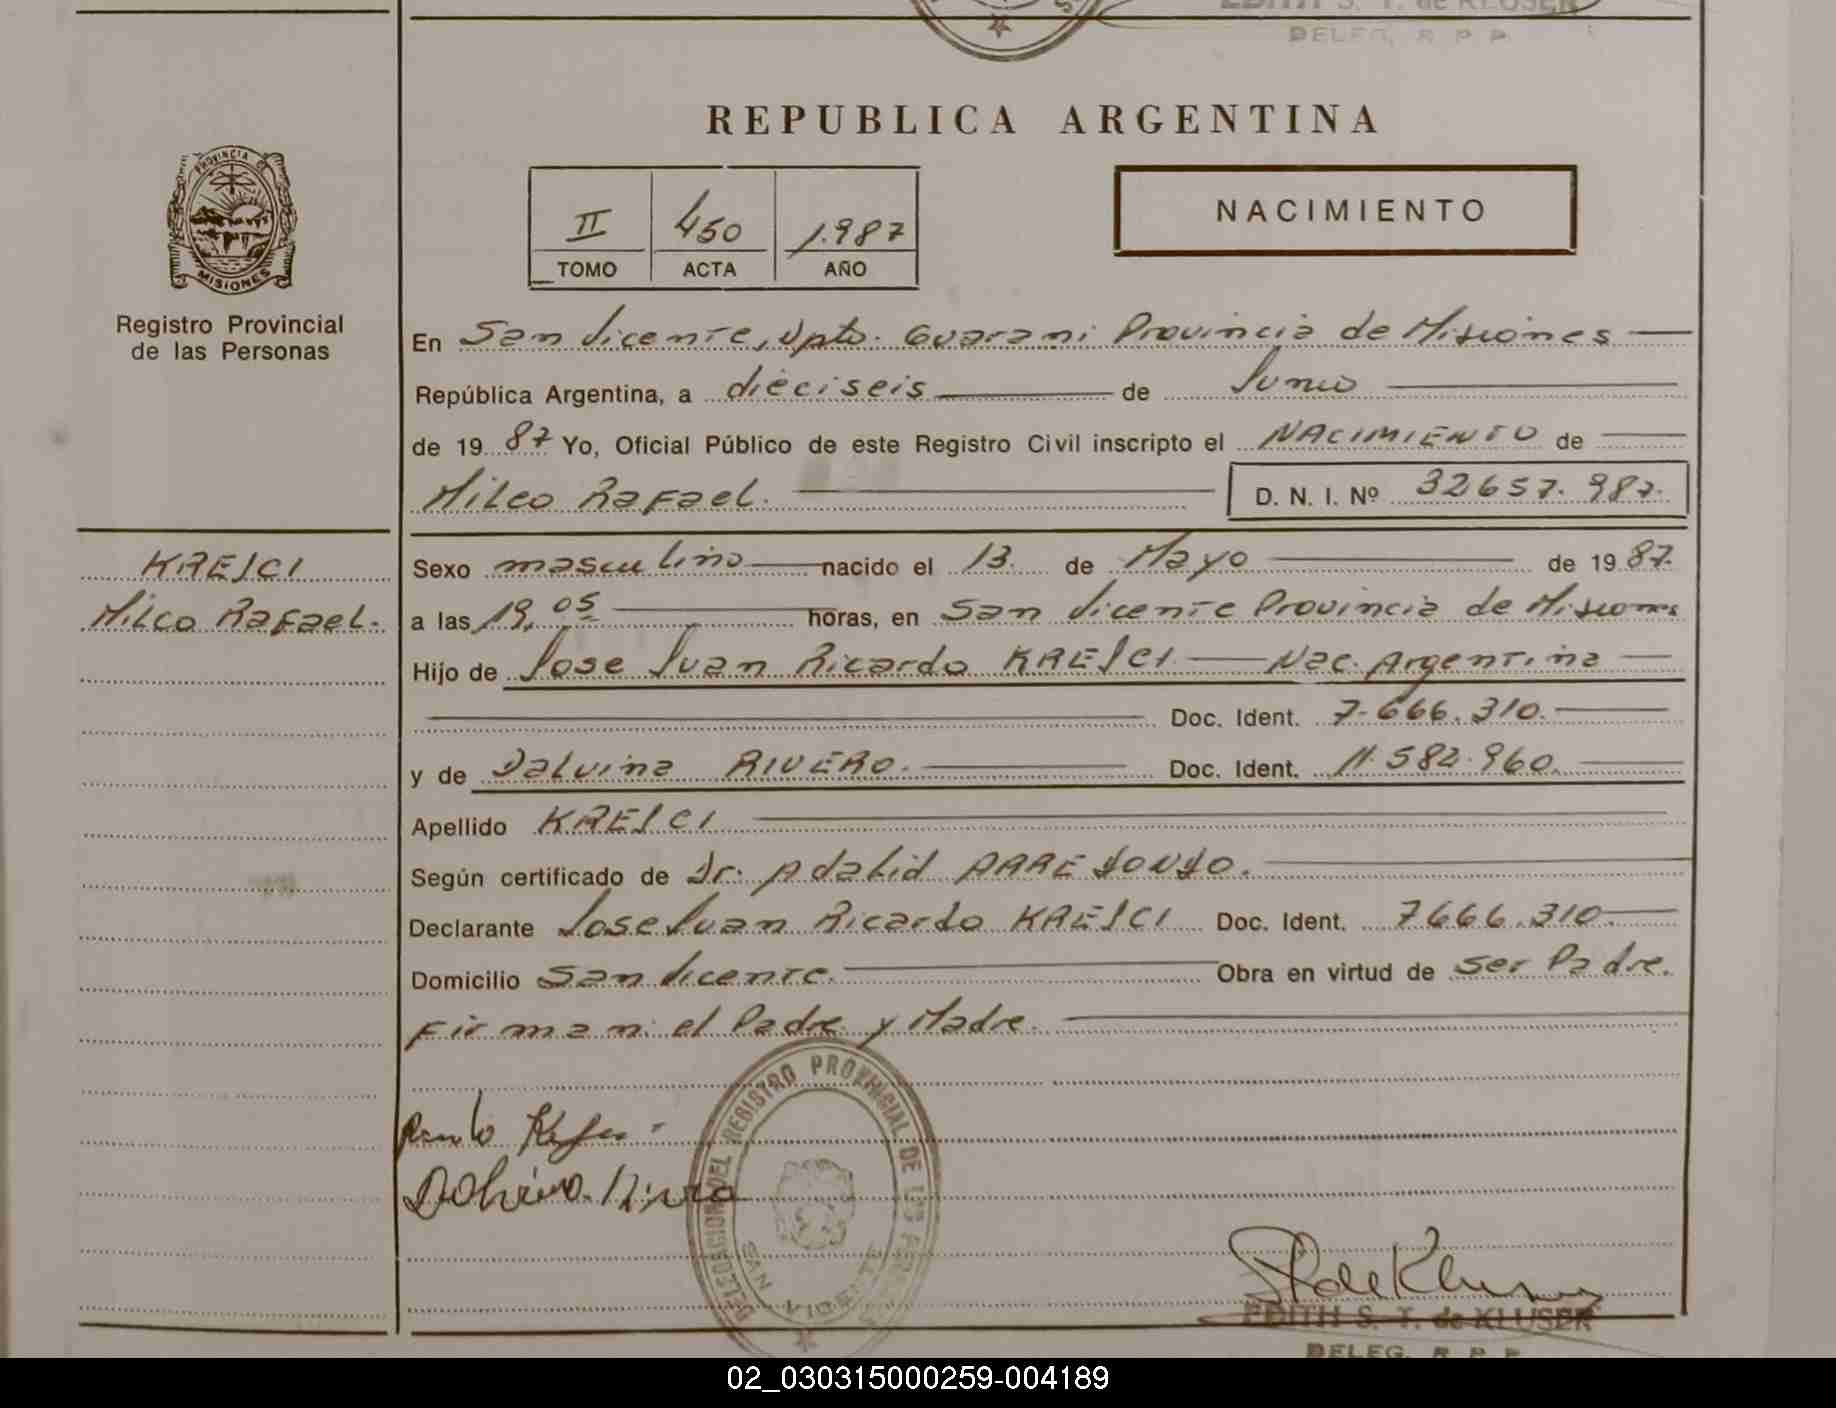 EDITH S. T. de KLUSER
DELEG. R. P. P.
REPUBLICA ARGENTINA
PROVINCIA DE
MISIONES
Registro Provincial
de las Personas
II 450 1.987
TOMO ACTA AÑO
NACIMIENTO
En San Vicente, Dpto. Guarani Provincia de Misiones
República Argentina, a dieciseis de Junio
de 1987 Yo, Oficial Público de este Registro Civil inscripto el NACIMIENTO de
Milco Rafael. D. N. I. Nº 32657.987.
KREJCI
Milco Rafael.
Sexo masculino nacido el 13. de Mayo de 1987.
a las 19,05 horas, en San Vicente Provincia de Misiones
Hijo de Jose Juan Ricardo KREJCI Nac. Argentina
Doc. Ident. 7.666.310.
y de Dalvina RIVERO. Doc. Ident. 11.582.960.
Apellido KREJCI
Según certificado de Dr. Adalid ARREYONYO.
Declarante Jose Juan Ricardo KREJCI Doc. Ident. 7666.310.
Domicilio San Vicente. Obra en virtud de ser Padre.
Firman: el Padre y Madre.
DELEGACION DEL REGISTRO PROVINCIAL DE LAS PERSONAS
SAN VICENTE
EDITH S. T. de KLUSER
DELEG. R. P. P.
02_030315000259-004189